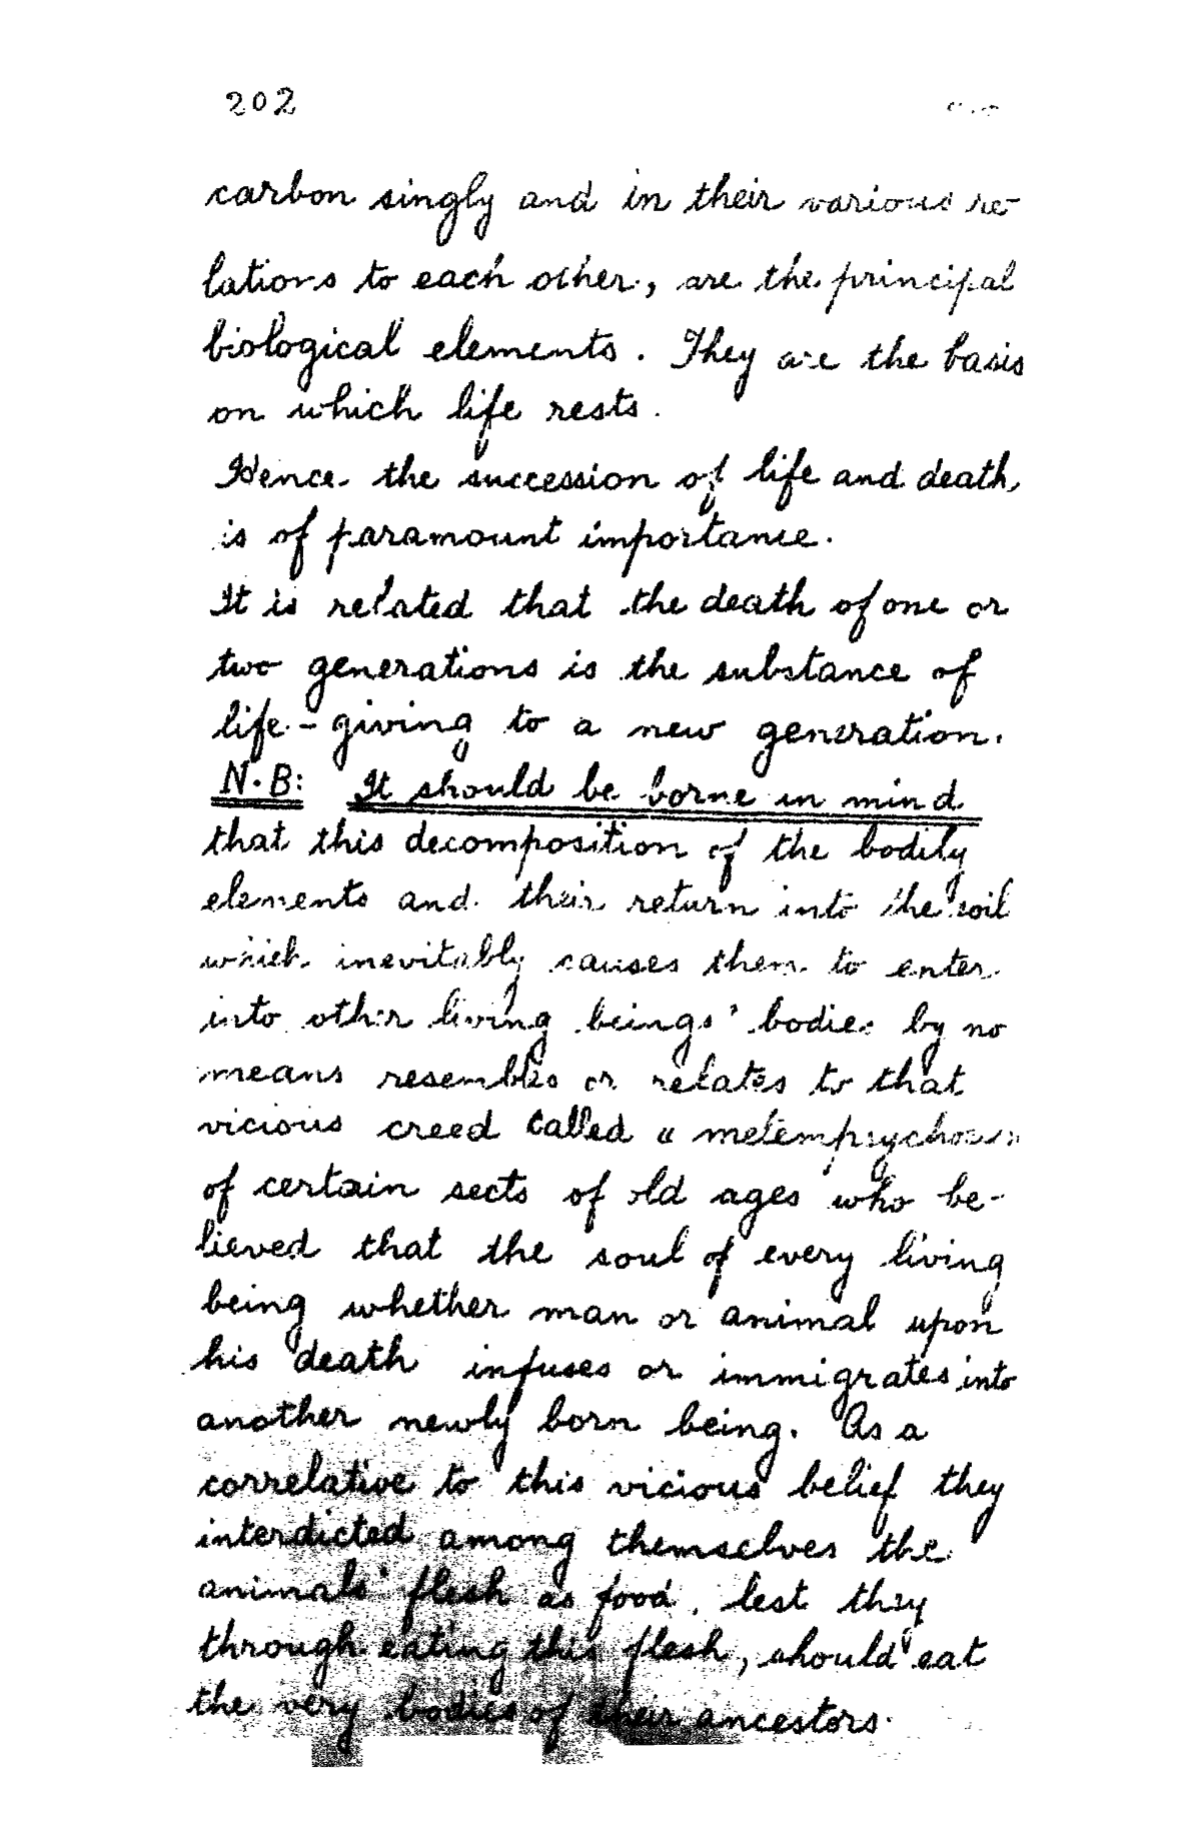 202
carbon singly and in their various re-
lations to each other, are the principal
biological elements. They are the basis
on which life rests.
Hence the succession of life and death,
is of paramount importance.
It is related that the death of one or
two generations is the substance of
life-giving to a new generation.
N.B: It should be borne in mind
that this decomposition of the bodily
elements and their return into the soil
which inevitably causes them to enter
into other living beings' bodies by no
means resembles or relates to that
vicious creed called "metempsychosis"
of certain sects of old ages who be-
lieved that the soul of every living
being whether man or animal upon
his death infuses or immigrates into
another newly born being. As a
correlative to this vicious belief they
interdicted among themselves the
animals' flesh as food, lest they
through eating this flesh, should eat
the very bodies of their ancestors.